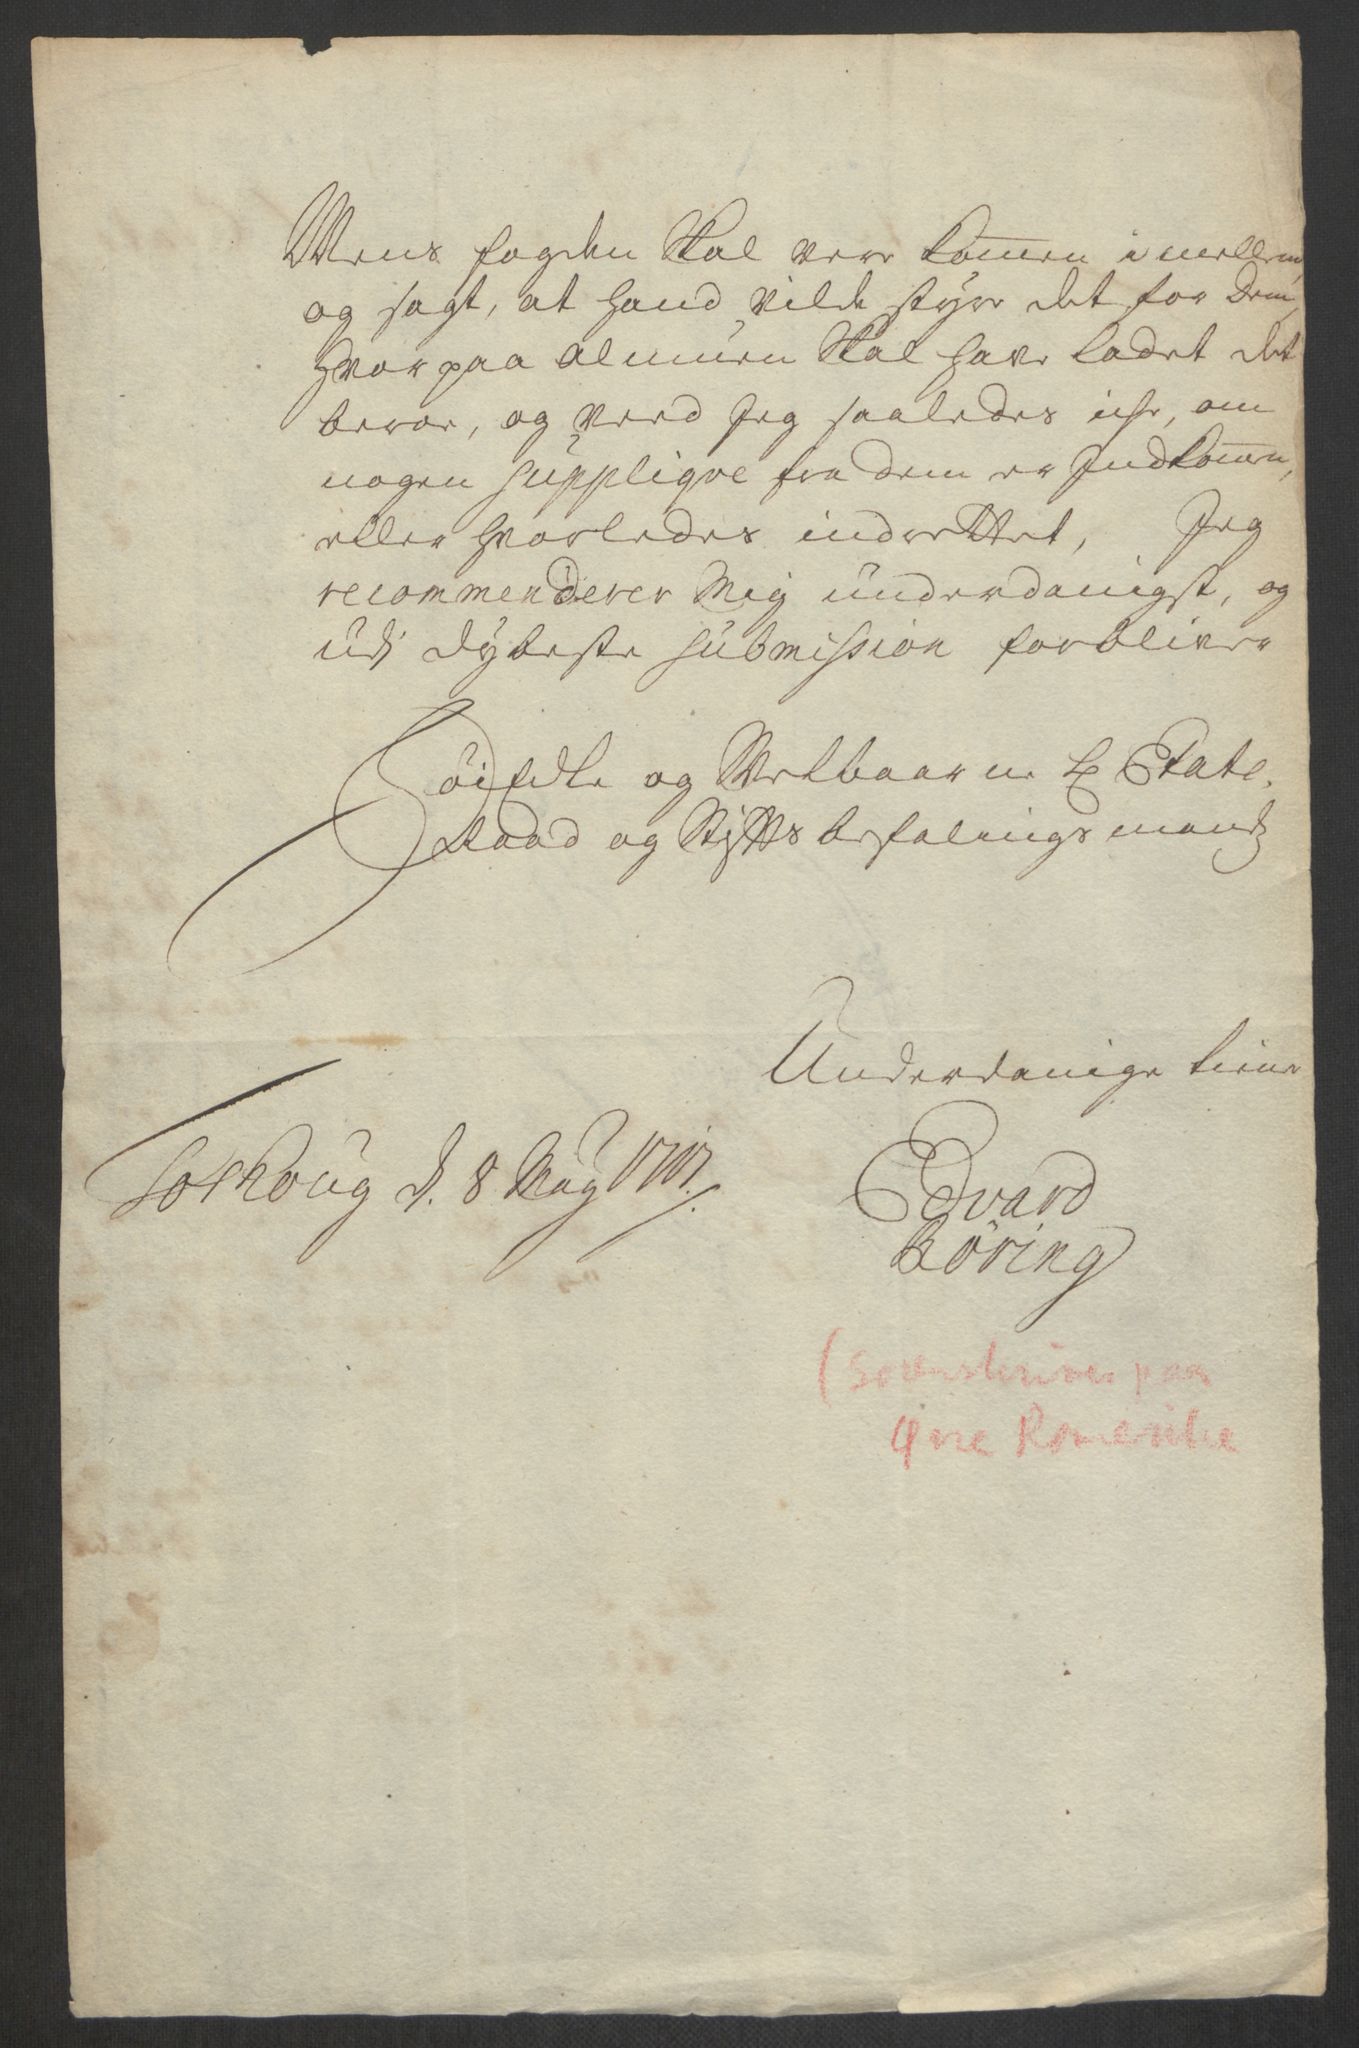 Mens fogden Skal vere kom̄en i mellem,
og sagt, at hand vilde styre det for dem,
hvor paa Almuen Skal have ladet det
beroe, og veed Jeg saaledes iche, om
nogen Supplique fra dem er Indkom̄en,
eller hvorledes indrettet, Jeg
recommenderer Mig underdanigst, og
udj dybeste Submission forbliver
Høi Edle og Velbaarne hr Etats.
Raad og Stifts befalings mands
Underdanige tiener
Edvard
Röring
d. 8 May 1717.
(Sorenskriver paa
Øvre Romerike